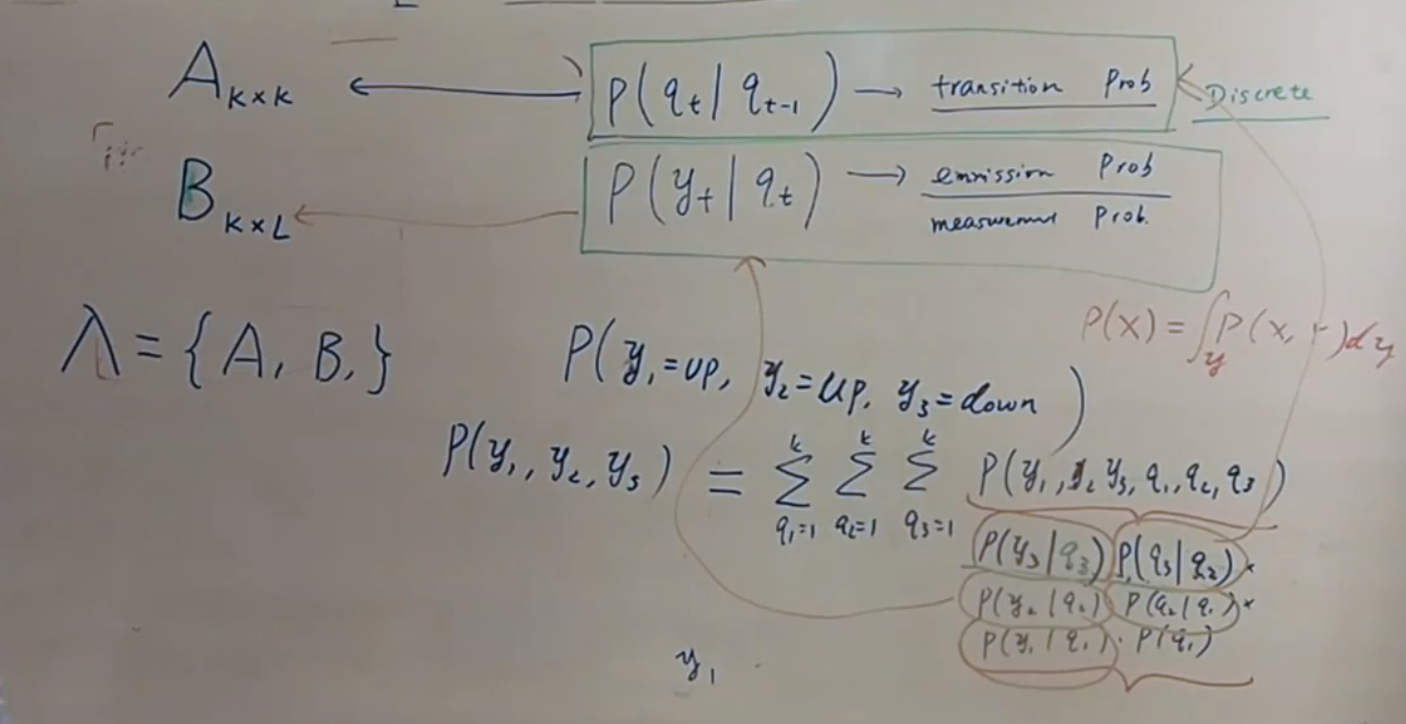 A_{K×K} ← P(q_t | q_{t-1}) → transition Prob
Discrete
B_{K×L} ← P(y_t | q_t) → emission Prob
measurement Prob.
P(x) = ∫_y P(x, y) dy
λ = {A, B, }
P(y_1 = up, y_2 = up, y_3 = down)
P(y_1, y_2, y_3) = ∑_{q_1=1}^{k} ∑_{q_2=1}^{k} ∑_{q_3=1}^{k} P(y_1, y_2 y_3, q_1, q_2, q_3)
P(y_3 | q_3) P(q_3 | q_2) ×
P(y_2 | q_2) P(q_2 | q_1) ×
P(y_1 | q_1) · P(q_1)
y_1